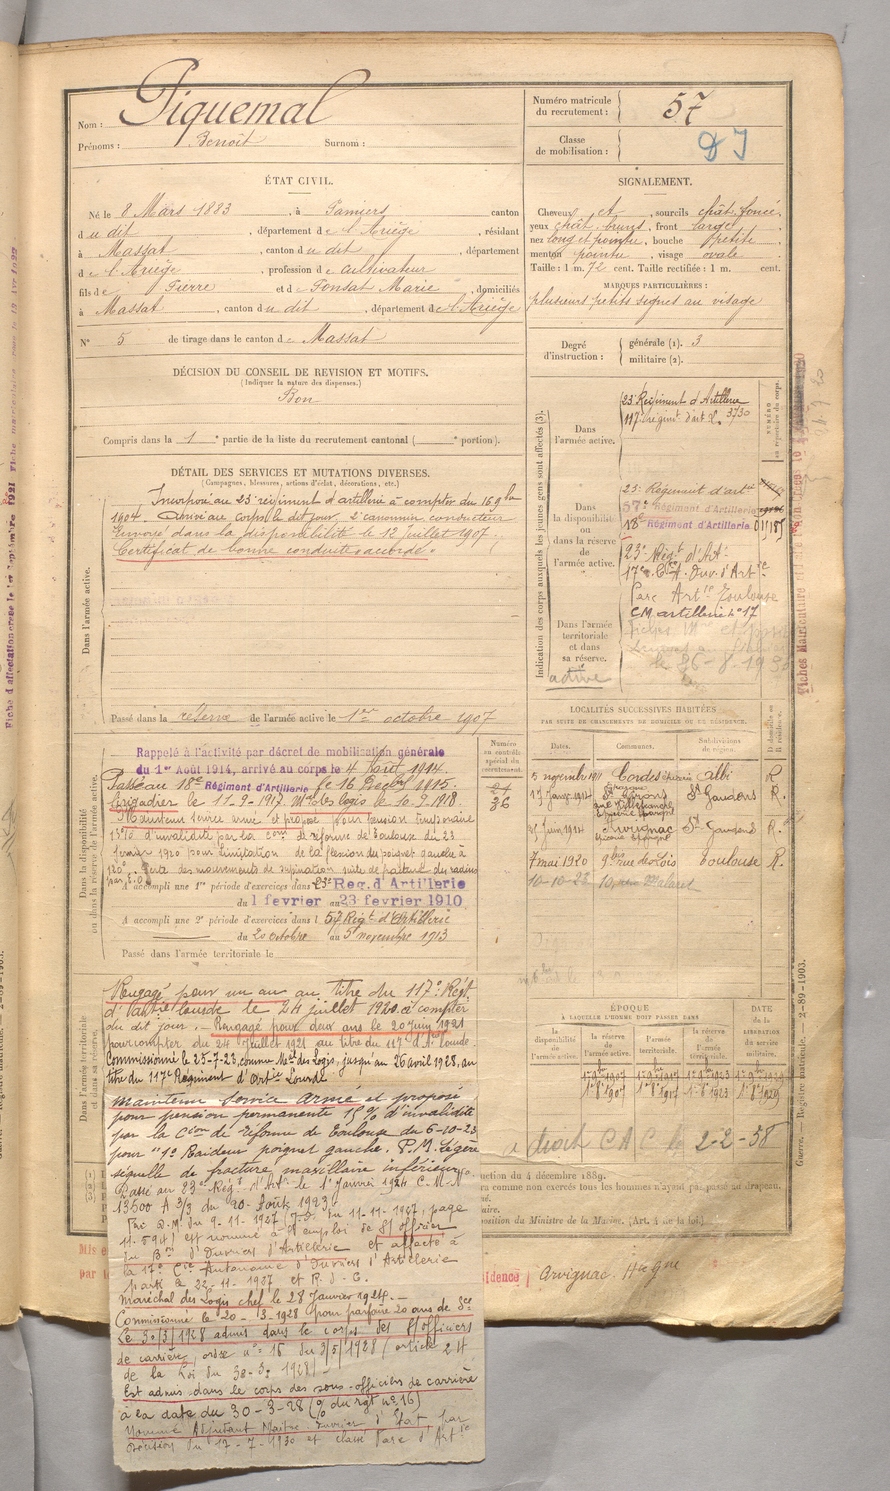 Nom : Piquemal
Prénoms : Benoit Surnom :
Numéro matricule du recrutement : 57
Classe de mobilisation :
ÉTAT CIVIL.
Né le 8 Mars 1883, à Pamiers canton
du dit, département de l'Ariège, résidant
à Massat, canton du dit, département
de l'Ariège, profession de cultivateur
fils de Pierre et de Fonsat Marie, domiciliés
à Massat, canton du dit, département de l'Ariège
N° 5 de tirage dans le canton de Massat
SIGNALEMENT.
Cheveux et sourcils chât. foncé
yeux chât. bruns, front large
nez long et pointu, bouche petite
menton pointu, visage ovale
Taille : 1 m. 72 cent. Taille rectifiée : 1 m. cent.
MARQUES PARTICULIÈRES :
plusieurs petits signes au visage
Degré d'instruction : générale (1). 3
militaire (2).
DÉCISION DU CONSEIL DE REVISION ET MOTIFS.
(Indiquer la nature des dispenses.)
Bon
Compris dans la 1e partie de la liste du recrutement cantonal ( e portion).
DÉTAIL DES SERVICES ET MUTATIONS DIVERSES.
(Campagnes, blessures, actions d'éclat, décorations, etc.)
Dans l'armée active.
Incorporé au 23e régiment d'artillerie à compter du 16 9bre
1904. Arrivé au corps le dit jour. 2e canonnier conducteur
Envoyé dans la disponibilité le 12 juillet 1907.
Certificat de bonne conduite accordé.
Passé dans la réserve de l'armée active le 1er octobre 1907
Indication des corps auxquels les jeunes gens sont affectés (3).
NUMÉRO
au répertoire du corps.
Dans l'armée active.
23e Régiment d'Artillerie
117e régimt d'art L. 3730
Dans la disponibilité ou dans la réserve de l'armée active.
23e Régiment d'artie
57e Régiment d'Artillerie
18e Régiment d'Artillerie
23e Régt d'Art
17e Cie A. Ouv. d'Artie
Parc Artie Toulouse
C.M. artillerie n° 17
Dans l'armée territoriale et dans sa réserve.
active
le 26-8-19
LOCALITÉS SUCCESSIVES HABITÉES
PAR SUITE DE CHANGEMENTS DE DOMICILE OU DE RÉSIDENCE.
Dates. Communes. Subdivisions de région. D domicile ou R résidence.
5 novembre 1911 Cordes Albi R
17 Janv. 1914 St Gaudens R.
31 Juin 1914 Arvignac St Gaudens R.
7 mai 1920 9 bis rue de Lois Toulouse R.
10-10-23 10, rue Malaret
Dans la disponibilité ou dans la réserve de l'armée active.
Numéro au contrôle spécial du recrutement.
36
Rappelé à l'activité par décret de mobilisation générale
du 1er Août 1914, arrivé au corps le 4 Août 1914.
Passé au 18e Régiment d'Artillerie le 16 Décbre 1915.
Brigadier le 11-9-1917. Mal des logis le 10-9-1918.
Maintenu service armé et proposé pour pension
15% d'invalidité par la Com de réforme de Toulouse du 23
1920 pour limitation de la flexion du poignet gauche à
Perte des mouvements de supination suite de fracture du radius
A accompli une 1re période d'exercices dans le 23e Reg. d'Artillerie
du 1 fevrier au 23 fevrier 1910
A accompli une 2e période d'exercices dans l 57 Régt d'Artillerie
du 20 octobre au 5 novembre 1913
Passé dans l'armée territoriale le
Dans l'armée territoriale et dans sa réserve.
Rengagé pour un an au titre du 117e Régt
d'Artrie lourde le 24 juillet 1920 à compter
du dit jour. - Rengagé pour deux ans le 20 juin 1921
pour compter du 24 Juillet 1921 au titre du 117e d'Art Lourde.
Commissionné le 25-7-23, comme Mal des Logis, jusqu'au 26 avril 1928, au
titre du 117e Régiment d'Artie Lourde
Maintenu Service Armé et proposé
pour pension permanente 15% d'invalidité
par la Cion de Réforme de Toulouse du 6-10-23
pour "1° Raideur poignet gauche. P.M. Légère
séquelle de fracture maxillaire inférieur.
Passé au 23e Régt d'Art. le 1er Janvier 1924 C.M. N°
13500 A 3/3 du 20 Août 1923
Par D.M. du 9-11-1927 J.O. du 11-11-1927, page
11.594) est nommé à l'emploi de S/officier
du Bon d'Ouvriers d'Artillerie et affecté à
la 17e Cie Autonome d'Ouvriers d'Artillerie
parti le 22-11-1927 et R.d.C.
Maréchal des Logis chef le 28 Janvier 1924. -
Commissionné le 20-13-1928 pour parfaire 20 ans de Sce
Le 30/3/1928 admis dans le corps des S/officiers
de carrière, ordre n° 16 du 3/5/1928 (article 24
de la Loi du 30-3-1928) -
Est admis dans le corps des sous-officiers de carrière
à la date du 30-3-28 (% du rgt n° 16)
Nommé Adjudant Maître Ouvrier d'Etat par
décision du 17-7-1930 et classé Parc d'Artie
ÉPOQUE
À LAQUELLE L'HOMME DOIT PASSER DANS
la disponibilité de l'armée active. la réserve de l'armée active. l'armée territoriale. la réserve de l'armée territoriale. DATE de la LIBÉRATION du service militaire.
1er 9bre 1907 1er 9bre 1917 1er 9bre 1923 1er 9bre 1929
1er 8bre 1907 1er 8bre 1917 1er 8bre 1923 1er 8bre 1929
a droit C A C le 2-2-58
uction du 4 décembre 1889.
ra comme non exercés tous les hommes n'ayant pas passé au drapeau.
position du Ministre de la Marine. (Art. 4 de la loi.)
sidence Arvignac. Hte Gne
Guerre. — Registre matricule. — 2-89-1903.